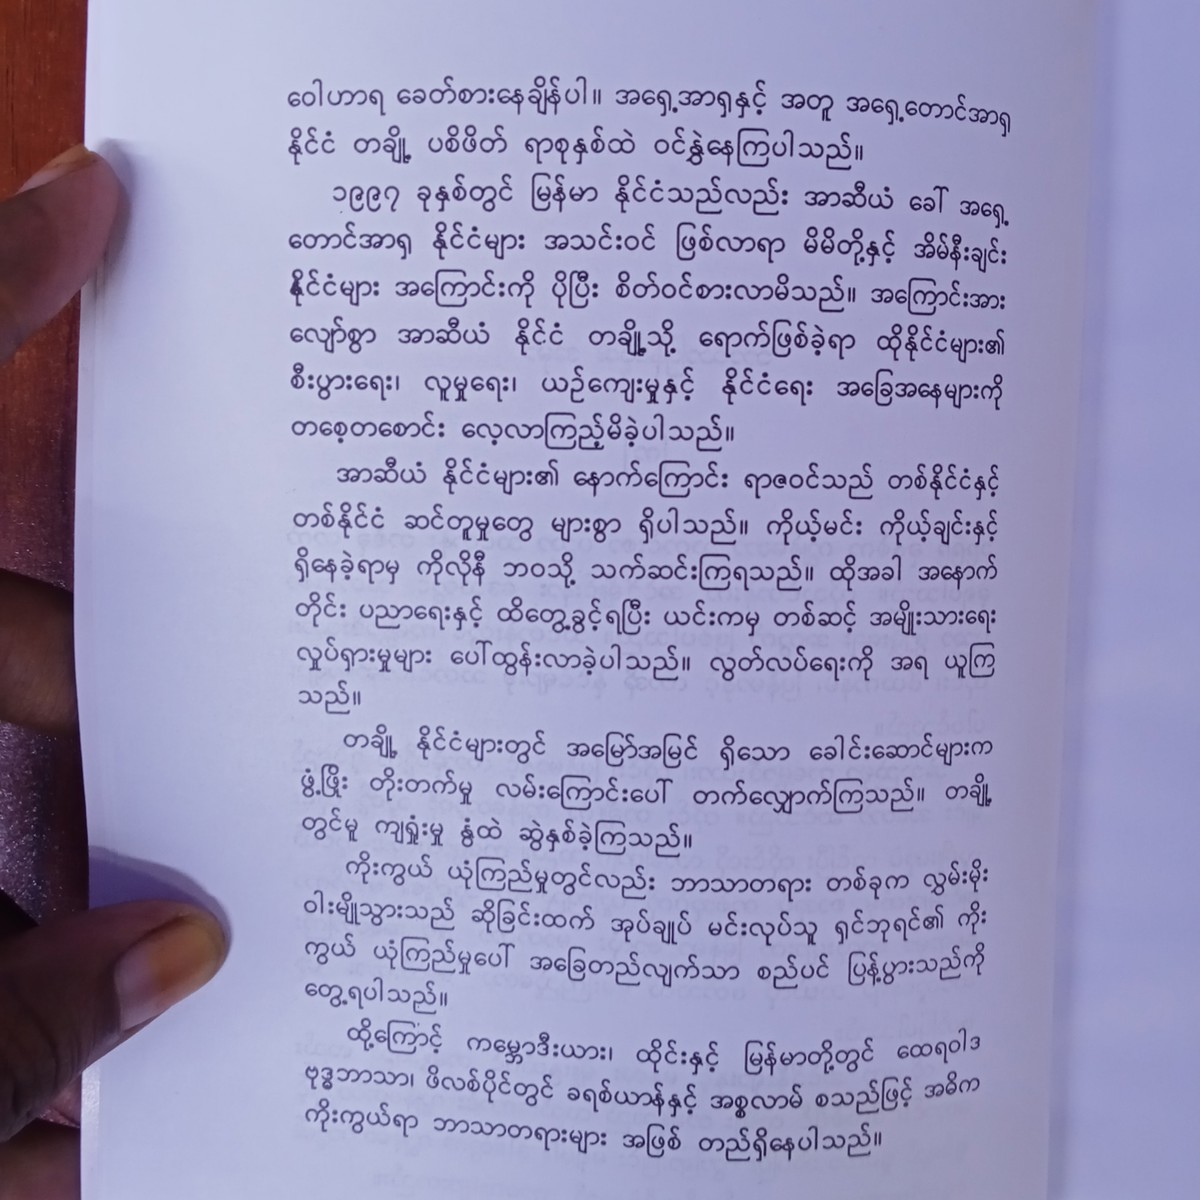 ဝေါဟာရ ခေတ်စားနေချိန်ပါ။ အရှေ့အာရှနှင့် အတူ အရှေ့တောင်အာရှ
နိုင်ငံ တချို့ ပစိဖိတ် ရာစုနှစ်ထဲ ဝင်နွှဲနေကြပါသည်။
၁၉၉၇ ခုနှစ်တွင် မြန်မာ နိုင်ငံသည်လည်း အာဆီယံ ခေါ် အရှေ့
တောင်အာရှ နိုင်ငံများ အသင်းဝင် ဖြစ်လာရာ မိမိတို့နှင့် အိမ်နီးချင်း
နိုင်ငံများ အကြောင်းကို ပိုပြီး စိတ်ဝင်စားလာမိသည်။ အကြောင်းအား
လျော်စွာ အာဆီယံ နိုင်ငံ တချို့သို့ ရောက်ဖြစ်ခဲ့ရာ ထိုနိုင်ငံများ၏
စီးပွားရေး၊ လူမှုရေး၊ ယဉ်ကျေးမှုနှင့် နိုင်ငံရေး အခြေအနေများကို
တစေ့တစောင်း လေ့လာကြည့်မိခဲ့ပါသည်။
အာဆီယံ နိုင်ငံများ၏ နောက်ကြောင်း ရာဇဝင်သည် တစ်နိုင်ငံနှင့်
တစ်နိုင်ငံ ဆင်တူမှုတွေ များစွာ ရှိပါသည်။ ကိုယ့်မင်း ကိုယ့်ချင်းနှင့်
ရှိနေခဲ့ရာမှ ကိုလိုနီ ဘဝသို့ သက်ဆင်းကြရသည်။ ထိုအခါ အနောက်
တိုင်း ပညာရေးနှင့် ထိတွေ့ခွင့်ရပြီး ယင်းကမှ တစ်ဆင့် အမျိုးသားရေး
လှုပ်ရှားမှုများ ပေါ်ထွန်းလာခဲ့ပါသည်။ လွတ်လပ်ရေးကို အရ ယူကြ
သည်။
တချို့ နိုင်ငံများတွင် အမြော်အမြင် ရှိသော ခေါင်းဆောင်များက
ဖွံ့ဖြိုး တိုးတက်မှု လမ်းကြောင်းပေါ် တက်လျှောက်ကြသည်။ တချို့
တွင်မူ ကျရှုံးမှု နွံထဲ ဆွဲနှစ်ခဲ့ကြသည်။
ကိုးကွယ် ယုံကြည်မှုတွင်လည်း ဘာသာတရား တစ်ခုက လွှမ်းမိုး
ဝါးမျိုသွားသည် ဆိုခြင်းထက် အုပ်ချုပ် မင်းလုပ်သူ ရှင်ဘုရင်၏ ကိုး
ကွယ် ယုံကြည်မှုပေါ် အခြေတည်လျက်သာ စည်ပင် ပြန့်ပွားသည်ကို
တွေ့ရပါသည်။
ထို့ကြောင့် ကမ္ဘောဒီးယား၊ ထိုင်းနှင့် မြန်မာတို့တွင် ထေရဝါဒ
ဗုဒ္ဓဘာသာ၊ ဖိလစ်ပိုင်တွင် ခရစ်ယာန်နှင့် အစ္စလာမ် စသည်ဖြင့် အဓိက
ကိုးကွယ်ရာ ဘာသာတရားများ အဖြစ် တည်ရှိနေပါသည်။